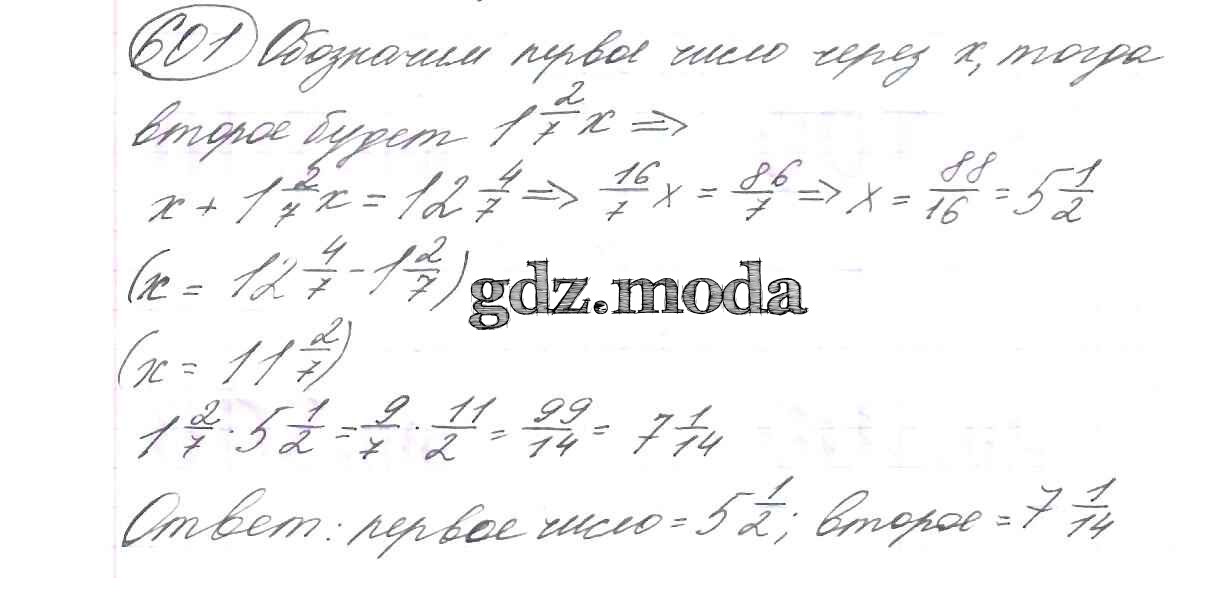 601 Обозначим первое число через x, тогда
второе будет 1 2/7 x ⇒
x + 1 2/7 x = 12 4/7 ⇒ 16/7 x = 86/7 ⇒ x = 88/16 = 5 1/2
(x = 12 4/7 - 1 2/7)
gdz.moda
(x = 11 2/7)
1 2/7 · 5 1/2 = 9/7 · 11/2 = 99/14 = 7 1/14
Ответ: первое число = 5 1/2; второе = 7 1/14